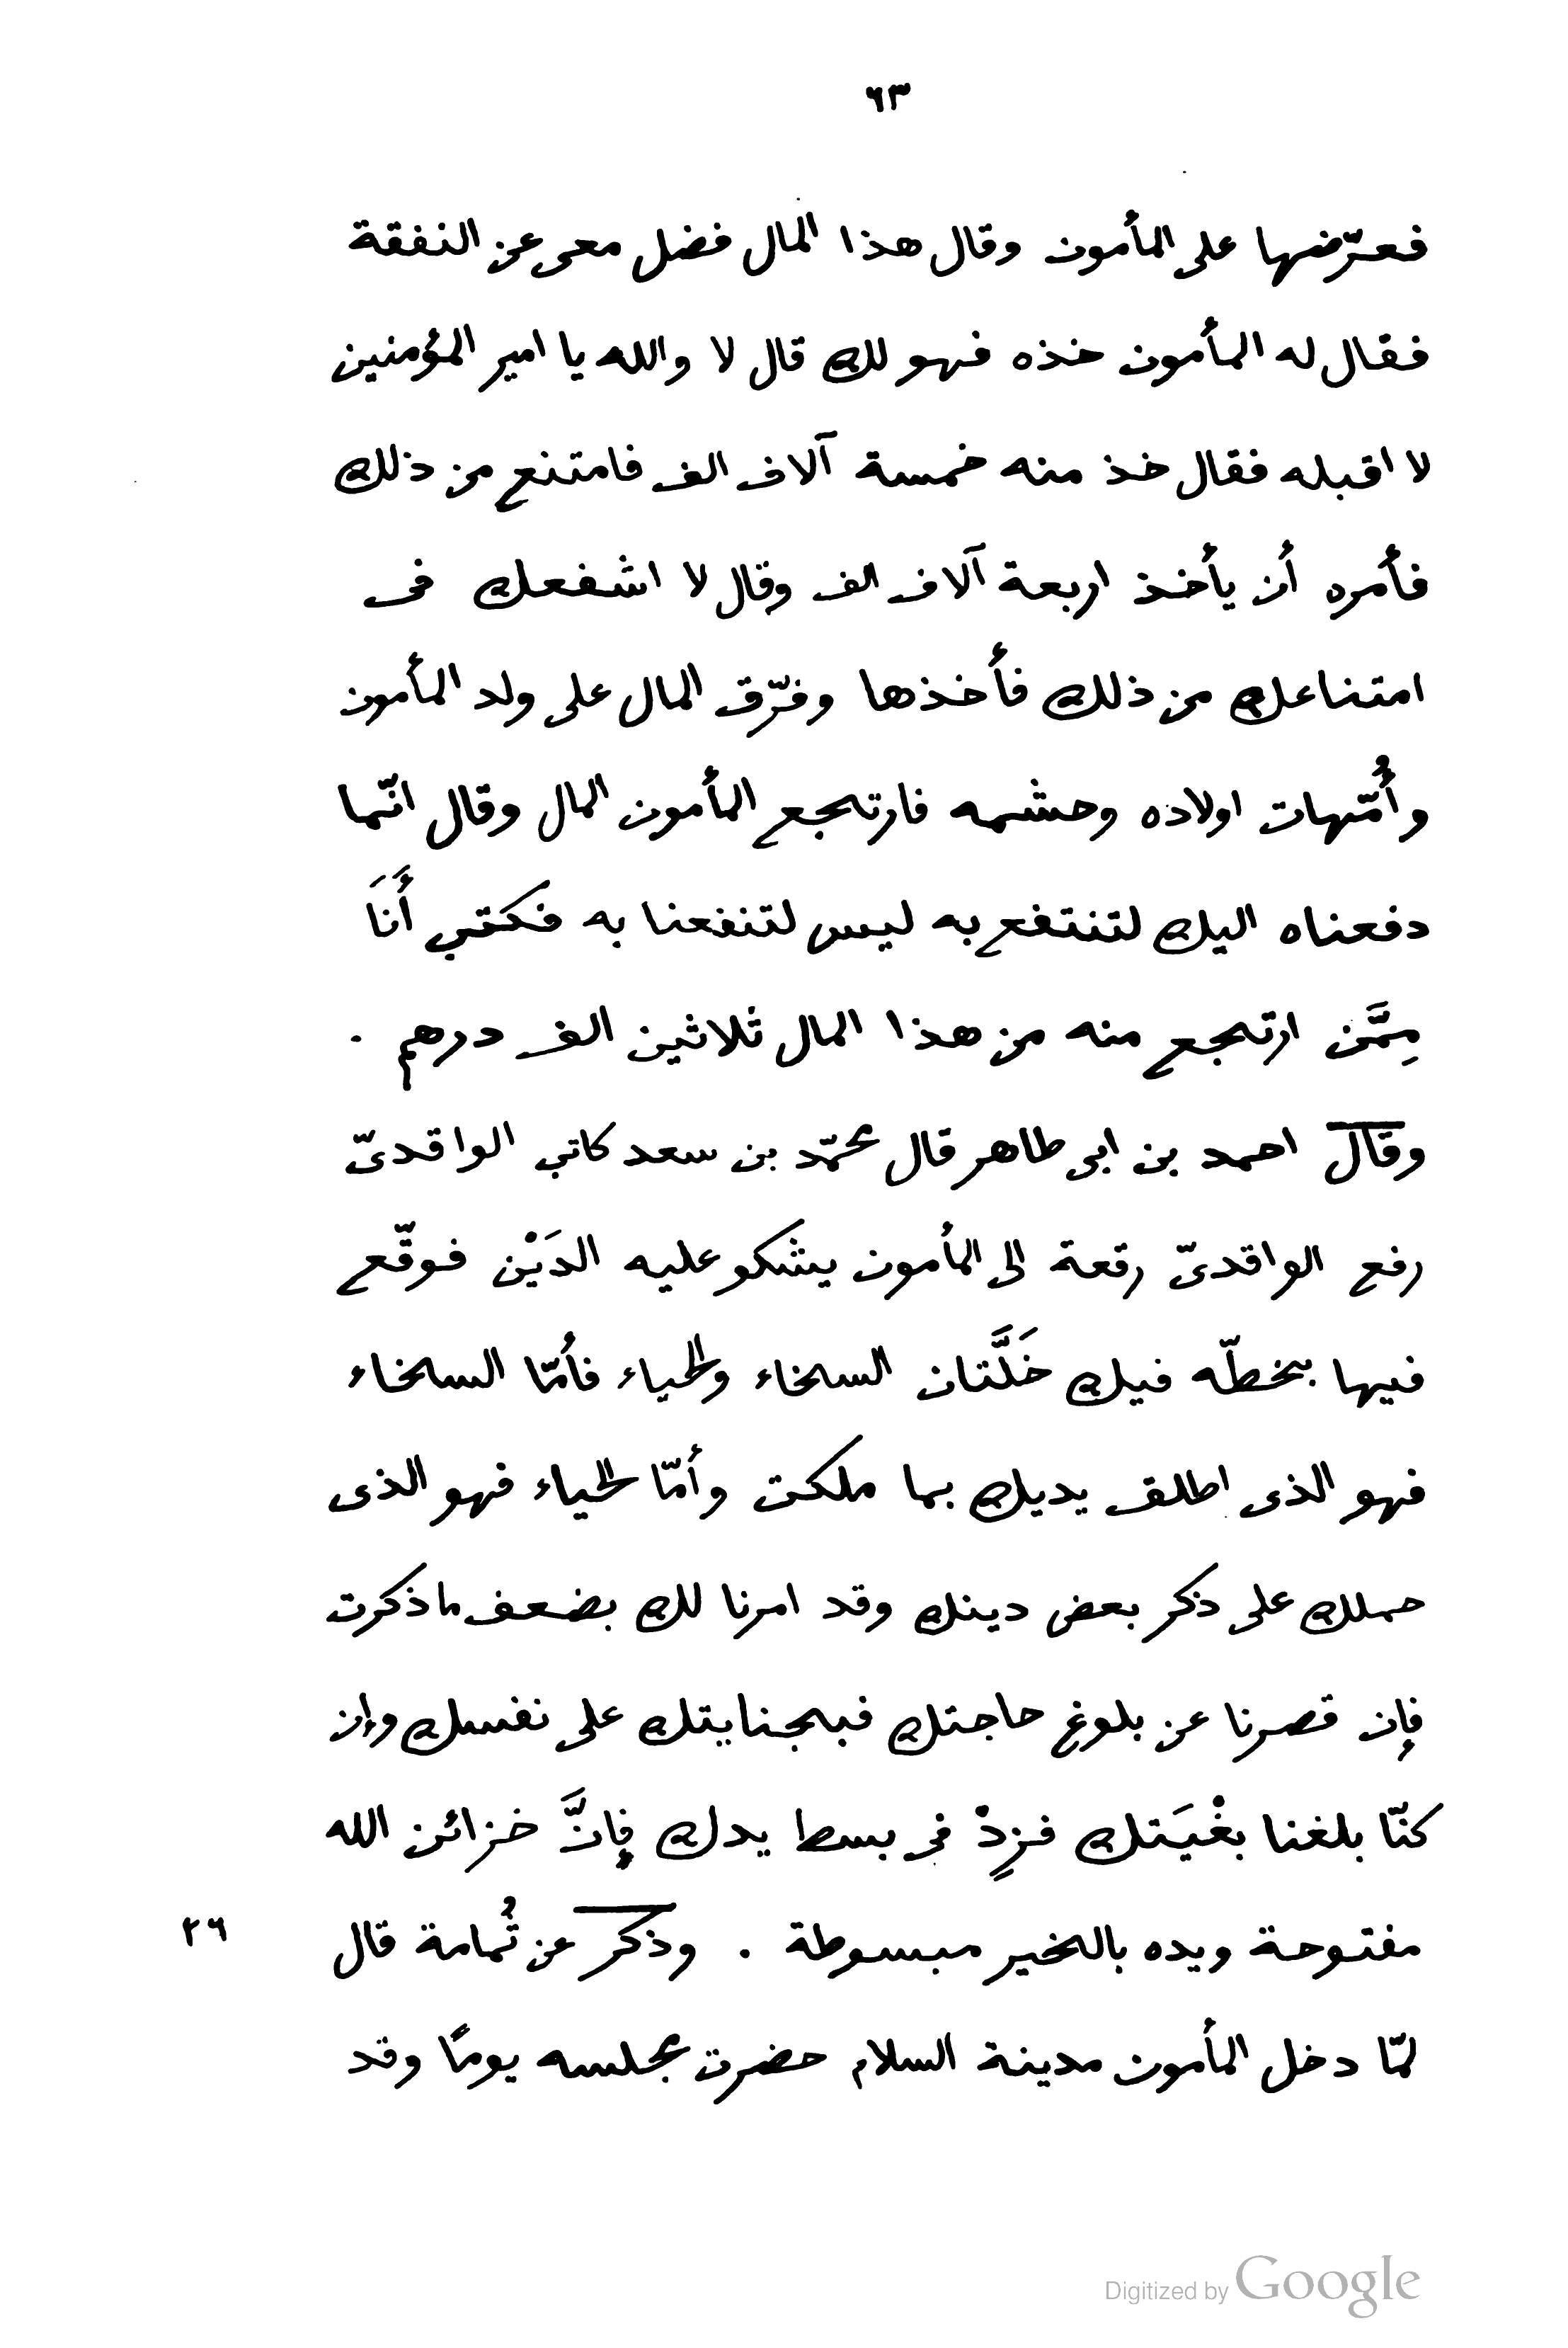 ٦٣
فعرّضها على المأمون وقال هذا المال فضل معى عن النفقة
فقال له المأمون خذه فهو لك قال لا والله يا امير المؤمنين
لا اقبله فقال خذ منه خمسة آلاف الف فامتنع من ذلك
فأمره أن يأخذ اربعة آلاف الف وقال لا اشفعك فى
امتناعك من ذلك فأخذها وفرّق المال على ولد المأمون
وأُمّهات اولاده وحشمه فارتجع المأمون المال وقال انّما
دفعناه اليك لتنتفع به ليس لتنفعنا به فكتبي أَنَا
مِمَّن ارتجع منه من هذا المال ثلاثين الف درهم .
وقال احمد بن ابى طاهر قال محمّد بن سعد كاتب الواقدىّ
رفع الواقدىّ رقعة الى المأمون يشكو عليه الدَيْن فوقّع
فيها بخطّه فيك خَلَّتان السخاء والحياء فأمّا السخاء
فهو الذى اطلق يديك بما ملكت وأمّا الحياء فهو الذى
حملك على ذكر بعض دينك وقد امرنا لك بضعف ما ذكرت
فإن قصرنا عن بلوغ حاجتك فبجنايتك على نفسك وإن
كنّا بلغنا بغْيَتك فزِدْ فى بسط يدك فإنَّ خزائن الله
مفتوحة ويده بالخير مبسوطة . وذكر عن ثُمامة قال
٢٦
لمّا دخل المأمون مدينة السلام حضرت مجلسه يومًا وقد
Digitized by Google